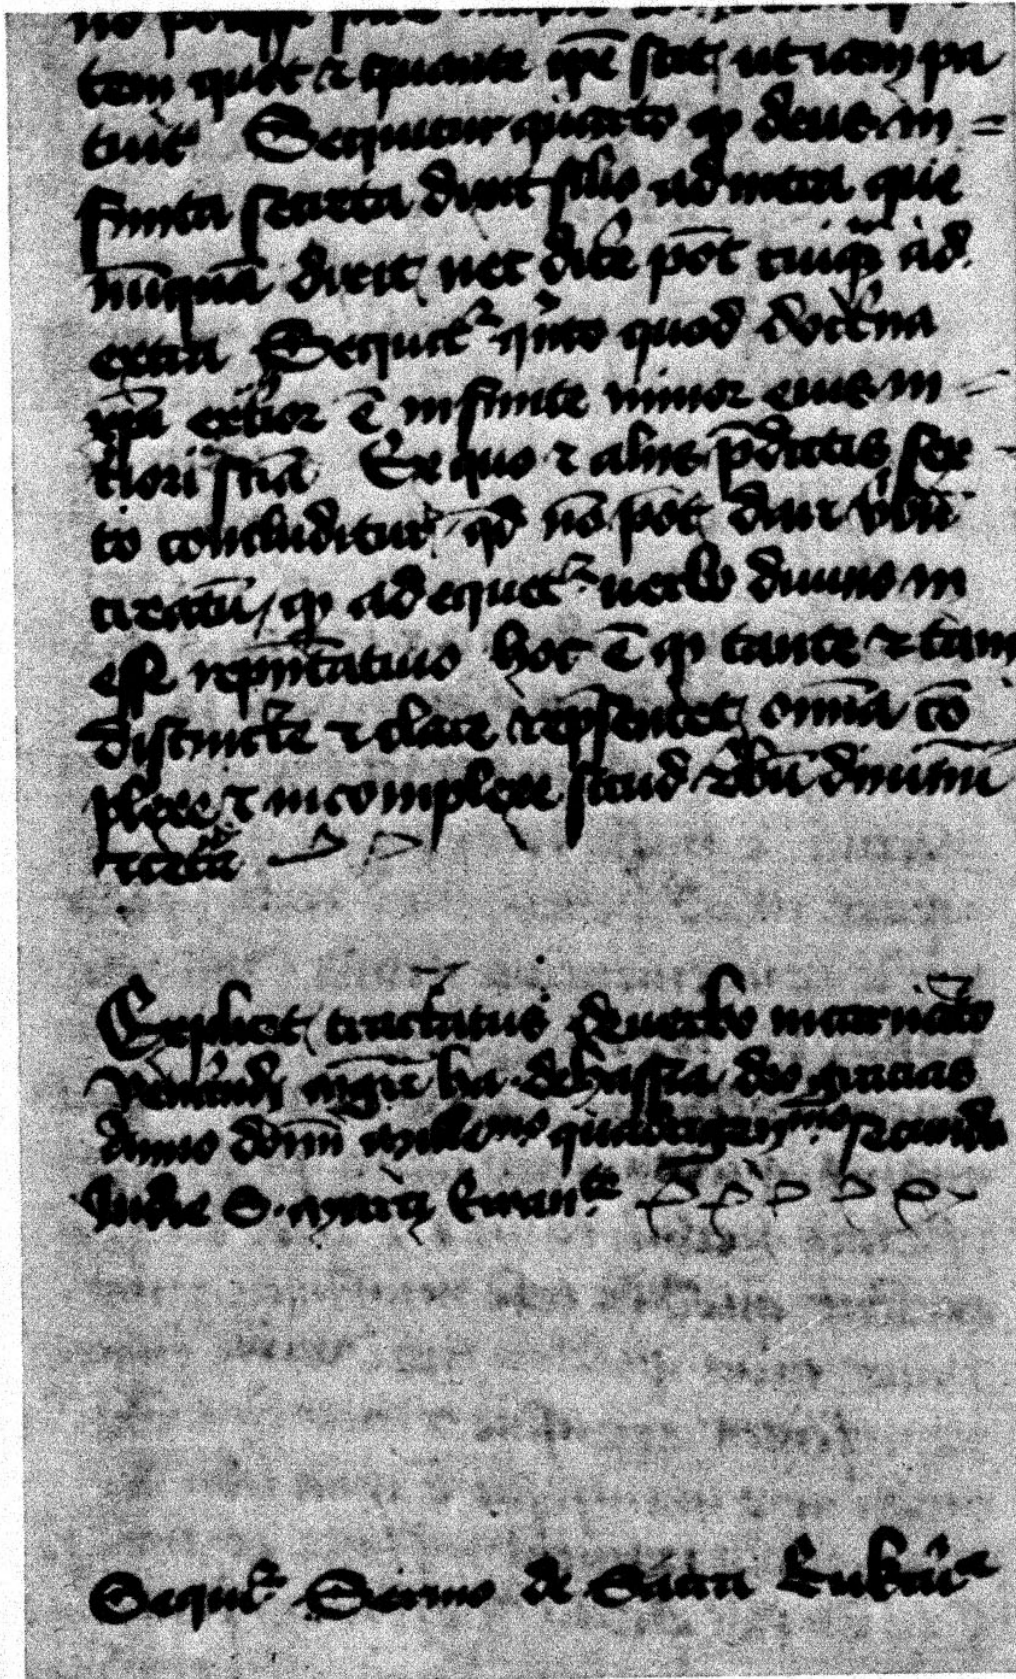 tem quot et quante ipse sciat ut iam pa
tuit Sequitur quarto quod deus in =
finita secreta dixit filio ad intra que
nūquā dixit nec dicere pōt cuiquam ad
extra Sequitur quinto quod doctrina
xpi exterior ē infinite minor eius in =
teriori scīa Ex quo et aliis p̄dictis sex -
to concluditur qd nō pōt dari verbū
creatū quod ad equetur verbo diuino in
esse repn̄tatiuo hoc ē quod tante et tam
distincte et clare rep̄sentet omnia cō
plexe et incomplexe sicud verbū diuinū
increatū
Explicit tractatus de verbo incarnato
Venerandi mgri ha. de hassia deo gratias
Anno dn̄i Millesimo quadringentesimo secundo
In die S.
Sequitur Sermo de Sancta